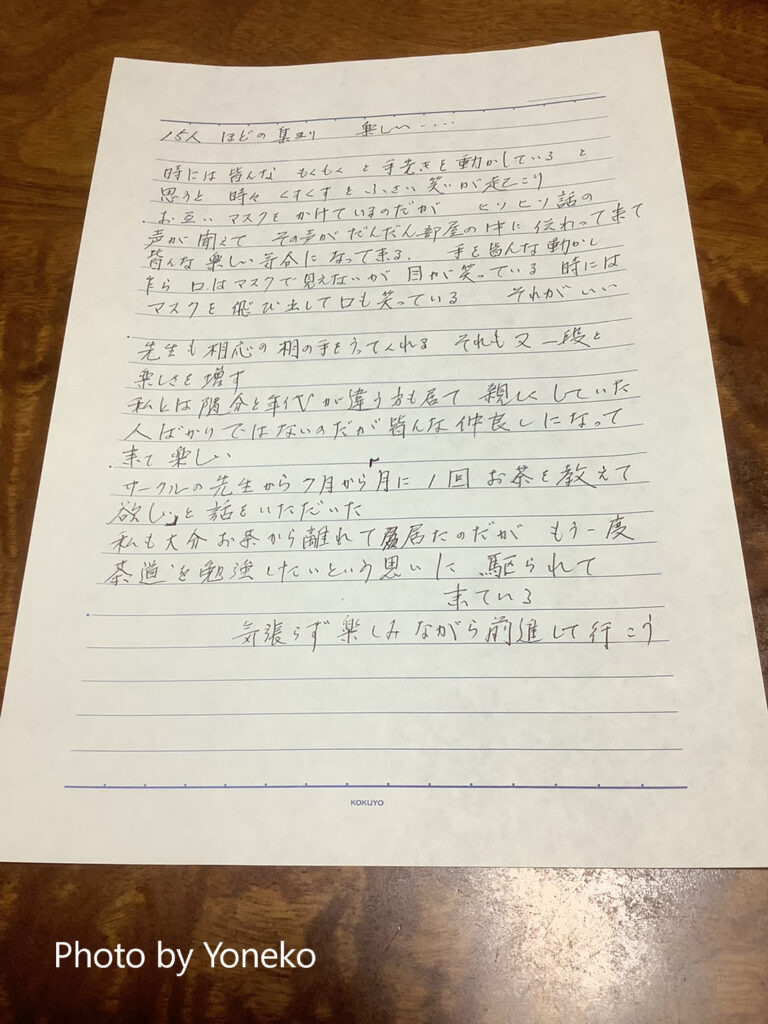 15人 ほどの集まり 楽しい‥‥
時には皆んな もくもくと手先きを動かしている と
思うと 時々 くすくすと小さい笑いが起こり
お互い マスクをかけているのだが ヒソヒソ話の
声が聞えて その声がだんだん部屋の中に伝わって来て
皆んな楽しい 気になって来る. 手を皆んな動かし
口はマスクで見えないが 目が笑っている 時には
マスクを飛び出して口も笑っている それがいい
先生も相応の相の手をうってくれる それも又一段と
楽しさを増す
私とは随分と年代が違う方も居て 親しくしていた
人ばかりではないのだが皆んな仲良しになって
来て 楽しい
サークルの先生から7月から月に1回 お茶を教えて
欲しいと話をいただいた
私も大分お茶から離れて居たのだが もう一度
茶道を勉強したいという思いに 駆られて
来ている
気張らず楽しみながら前進して行こう
KOKUYO
Photo by Yoneko